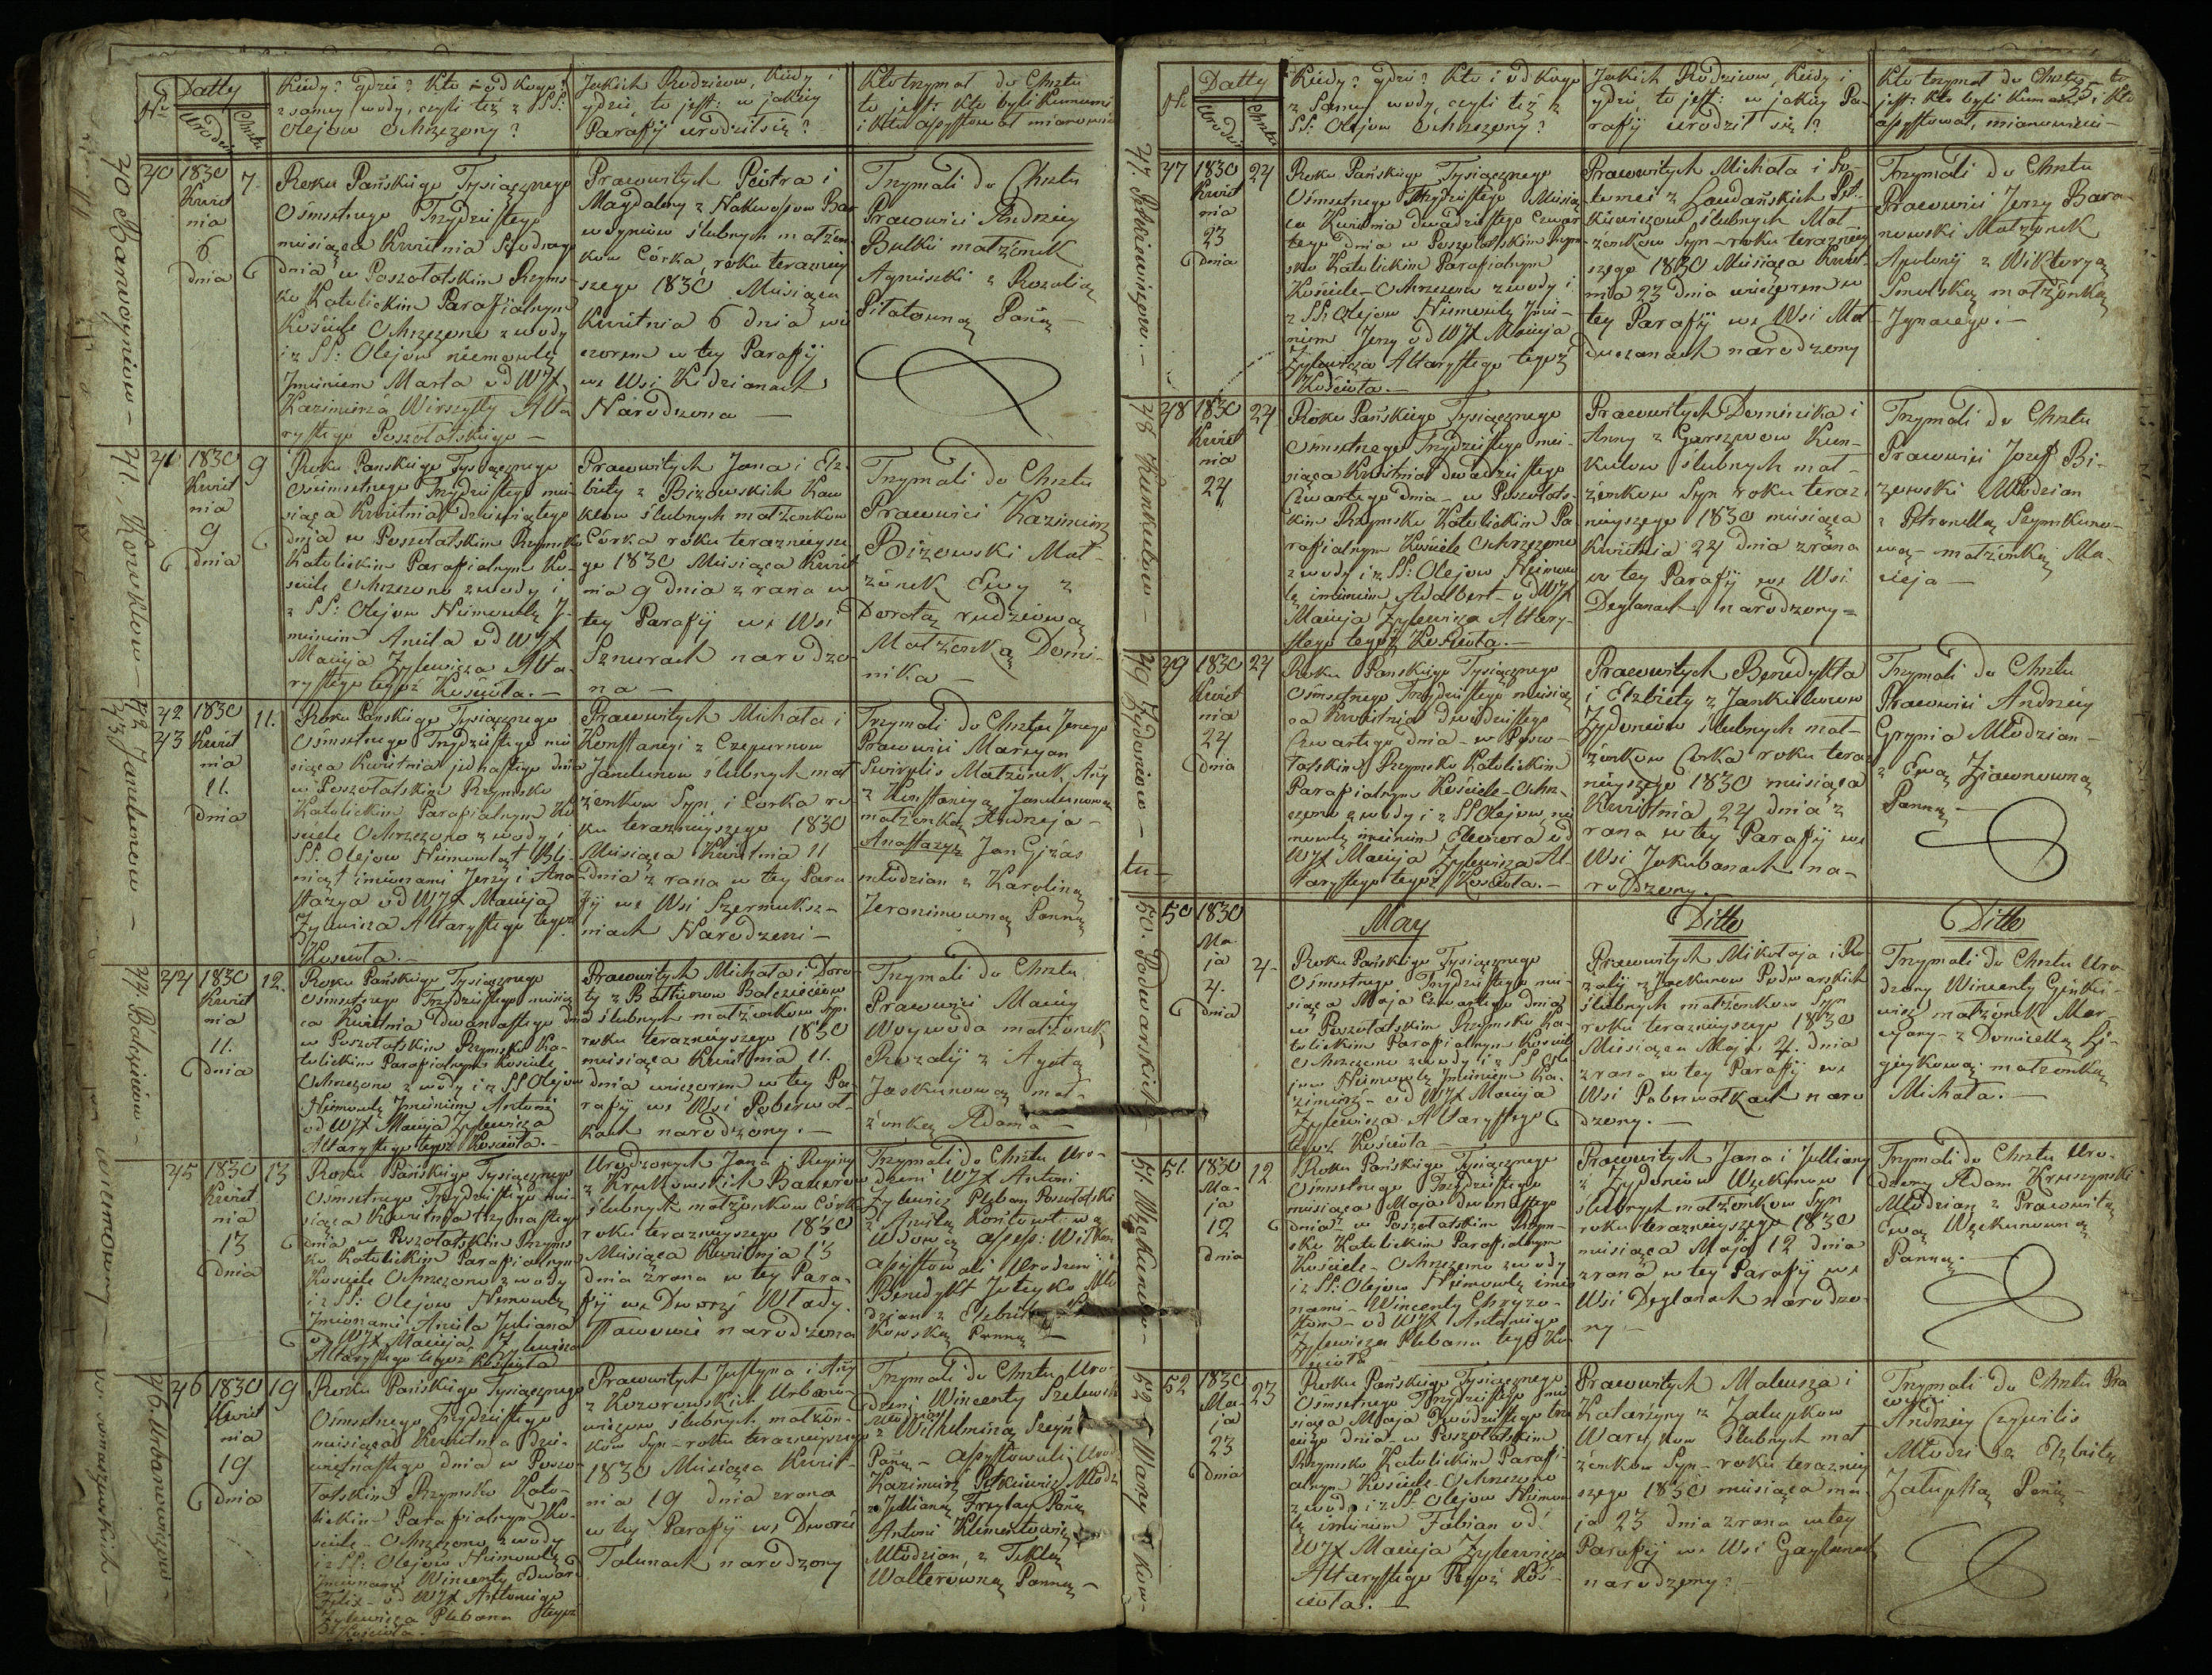 Nr
Datty
Urodzin
Chrztu
Kiedy? gdzie? Kto i od kogo?
z samey wody, czyli też z SS:
Olejow Ochrzczony?
Jakich Rodziców, Kiedy i
gdzie, to jest: w jakiey
Parafij urodził się?
Kto trzymał do Chrztu
to jest: Kto byli Kumami
i Kto assystował mianowicie
40
1830
Kwiet
nia
6
dnia
7.
Roku Pańskiego Tysiącznego
Ośmsetnego Trzydziestego
miesiąca Kwietnia Siodmego
dnia w Poszołatskim Rzyms-
ko Katolickim Parafialnym
Kościele Ochrzczono z wody
i z SS: Olejow niemowlę
Jmieniem Marta od WJX
Kazimierza Wirszyłły Alta
rystego Poszołatskiego —
Prawowitych Piotra i
Magdaleny z
ślubnych małżon-
kow Córka, roku teraźniey
szego 1830 Miesiąca
Kwietnia 6 dnia wie
czorem w tey Parafij
we Wsi Kidzianach
Narodzona —
Trzymali do Chrztu
Prawowici Andrzey
Butki małżonek
Agnieszki z Rozalią
Piłatowną Panną —
41
1830
Kwiet
nia
9
dnia
9
Roku Pańskiego Tysiącznego
Ośmsetnego Trzydziestego mie-
siąca Kwietnia dziewiątego
dnia w Poszołatskim Rzymsko
Katolickim Parafialnym Ko-
ściele Ochrzczono z wody i
z SS: Olejow Niemowlę J-
mieniem Aniela od WJX
Macieja Zylewicza Alta-
rystego tegoż Kościoła. —
Prawowitych Jana i Elż-
biety z Bizowskich Kow
klow ślubnych małżonkow
Córka roku teraźnieysze
go 1830 Miesiąca Kwiet
nia 9 dnia z rana w
tey Parafij we Wsi
Sznurach narodzo-
na —
Trzymali do Chrztu
Prawowici Kazimierz
Bizowski Mał-
żonek Ewy z
Dorotą
Małżonką Domi-
nika —
42
43
1830
Kwiet
nia
11.
dnia
11.
Roku Pańskiego Tysiącznego
Ośmsetnego Trzydziestego mie
siąca Kwietnia jednastego dnia
w Poszołatskim Rzymsko
Katolickim Parafialnym Ko
ściele Ochrzczono z wody i
SS. Olejow Niemowląt Bli-
źniąt imionami Jerzy i Ana
stazya od WJX Macieja
Zylewicza Altarystego tegoż
Kościoła. —
Prawowitych Michała i
Konstancyi z Czepurnow
Jandunow ślubnych mał
żonkow Syn i Corka ro
ku teraźnieyszego 1830
Miesiąca Kwietnia 11
dnia z rana w tey Para
fij we Wsi Szermuksz-
niach Narodzeni —
Trzymali do Chrztu Jerzego
Prawowici Maryan
Swirplis Małżonek Anny
z Konstancyą Jandunową
małżonką Andrzeja —
Anastazyą Jan Giżas
młodzian z Karoliną
Jeronimowną Panną
44
1830
Kwiet
nia
11.
dnia
12.
Roku Pańskiego Tysiącznego
Ośmsetnego Trzydziestego miesią
ca Kwietnia Dwanastego dnia
w Poszołatskim Rzymsko Ka-
tolickim Parafialnym Kościele
Ochrzczono z wody i z SS Olejow
Niemowlę Jmieniem Antoni
od WJX Macieja Zylewicza
Altarystego tegoż Kościoła. —
Prawowitych Michała i Doro-
ty z Bałtunow Bolcziciow
ślubnych małżonkow Syn
roku teraźnieyszego 1830
miesiąca Kwietnia 11.
dnia wieczorem w tey Pa-
rafij we Wsi Poberwoł-
kach narodzony. —
Trzymali do Chrztu
Prawowici Maciey
Woywoda małżonek
Rozalij z Agatą
Jaskunową mał-
żonką Adama —
45
1830
Kwiet
nia
13
dnia
13
Roku Pańskiego Tysiącznego
Ośmsetnego Trzydziestego mie-
siąca Kwietnia trzynastego
dnia w Poszołatskim Rzyms
ko Katolickim Parafialnym
Kościele Ochrzczono z wody
i z SS: Olejow Niemowlę
Jmionami Aniela Juliana
od WJX Macieja Zylewicza
Altarystego tegoż Kościoła
Urodzonych Jana i Reginy
z Krukowskich Bauerow
ślubnych małżonkow Córka
roku teraźnieyszego 1830
Miesiąca Kwietnia 13
dnia z rana w tey Para-
fij we Dworze Włady-
sławowie narodzona
Trzymali do Chrztu Uro-
dzeni WJX Antoni
Zylewicz Pleban Poszołatski
z Anielą
Wdową
asystowali Urodzeni:
Benedykt Juteyko Mło
dzian z Elżbietą
Panną —
46
1830
Kwiet
nia
19
dnia
19
Roku Pańskiego Tysiącznego
Ośmsetnego Trzydziestego
miesiąca Kwietnia dzie-
więtnastego dnia w Poszo-
łatskim Rzymsko Kato-
lickim Parafialnym Ko-
ściele Ochrzczono z wody
i z SS: Olejow Niemowlę
Jmionami Wincenty Edward
Felix — od WJX Antoniego
Zylewicza Plebana tegoż
Kościoła. —
Prawowitych Justyna i Anny
z Kozorowskich Urbano-
wiczow ślubnych małżon-
kow Syn — roku teraźnieyszego
1830 Miesiąca Kwiet-
nia 19 dnia z rana
w tey Parafij we Dworze
Talunach narodzony
Trzymali do Chrztu Uro-
dzeni Wincenty
z Wilhelminą
Panną — Asystowali Uro
Kazimierz Petkiewicz Młodz
z Julianą Freytag Panną
Antoni Klimontowicz
Młodzian, z Teklą
Walterowną Panną —
40 Barwoyniow —
41. Kowklow —
42 43 Jandunow —
44. Bolcziciow —
46. Urbanowiczow —
Nr
Datty
Urodzin
Chrztu
Kiedy? gdzie? Kto i od kogo
z Samey wody, czyli też z
SS: Olejow Ochrzczony?
Jakich Rodziców, Kiedy i
gdzie, to jest: w jakiey Pa-
rafij urodził się?
Kto trzymał do Chrztu, to
jest: Kto byli Kumami i Kto
assystował, mianowicie —
35
47
1830
Kwiet
nia
23
dnia
24
Roku Pańskiego Tysiącznego
Ośmsetnego Trzydziestego Miesią
ca Kwietnia dwudziestego Czwar
tego dnia w Poszołatskim Rzym-
sko Katolickim Parafialnym
Kościele Ochrzczono z wody i
z SS: Olejow Niemowlę Jmie-
niem Jerzy od WJX Macieja
Zylewicza Altarystego tegoż
Kościoła. —
Prawowitych Michała i Sa-
lomei z Laudańskich Pet-
kiewiczow ślubnych Mał-
żonkow Syn — roku teraźniey
szego 1830 Miesiąca Kwiet-
nia 23 dnia wieczorem w
tey Parafij we Wsi
narodzony
Trzymali do Chrztu
Prawowici Jerzy Bara-
nowski Małżonek
Apolonij z Wiktoryą
Smolską małżonką
Jgnacego. —
48
1830
Kwiet
nia
24
24
Roku Pańskiego Tysiącznego
Ośmsetnego Trzydziestego mie-
siąca Kwietnia dwudziestego
Czwartego dnia — w Poszołats-
kim Rzymsko Katolickim Pa
rafialnym Kościele Ochrzczono
z wody i z SS: Olejow Niemow
lę imieniem Adalbert — od WJX
Macieja Zylewicza Altary-
stego tegoż Kościoła. —
Prawowitych Dominika i
Anny z Garszwow Kun-
kulow ślubnych mał-
żonkow Syn roku teraz
nieyszego 1830 miesiąca
Kwietnia 24 dnia z rana
w tey Parafij we Wsi
Deglanach narodzony —
Trzymali do Chrztu
Prawowici Jozef Bi-
zowski Młodzian
z Petronellą Szymkuno-
wą — małżonką Ma-
cieja —
49
1830
Kwiet
nia
24
dnia
24
Roku Pańskiego Tysiącznego
Ośmsetnego Trzydziestego miesią
ca Kwietnia dwudziestego
Czwartego dnia — w Poszo-
łatskim Rzymsko Katolickim
Parafialnym Kościele — Ochrz-
czono z wody i z SS Olejow, nie
mowlę imieniem Eleonora od
WJX Macieja Zylewicza Al-
tarystego tegoż Kościoła. —
Prawowitych Benedykta
i Elżbiety z Jankulewow
Zydoniow ślubnych mał-
żonkow Corka roku teraz
nieyszego 1830 miesiąca
Kwietnia 24 dnia z
rana w tey Parafij we
Wsi Jakubanach na-
rodzony. —
Trzymali do Chrztu
Prawowici Andrzey
Grynia Młodzian —
z Ewą
Panną —
May
Ditto
Ditto
50
1830
Ma-
ja
4.
dnia
4
Roku Pańskiego Tysiącznego
Ośmsetnego Trzydziestego mie-
siąca Maja Czwartego dnia
w Poszołatskim Rzymsko Ka-
tolickim Parafialnym Kościele
Ochrzczono z wody i z SS Ole
jow Niemowlę Jmieniem Ka-
zimierz — od WJX Macieja
Zylewicza Altarystego
tegoż Kościoła —
Prawowitych Mikołaja i Ro
zalij z Podwarskich
ślubnych małżonkow Syn
roku teraźnieyszego 1830
Miesiąca Maja 4. dnia
z rana w tey Parafij we
Wsi Poberwołkach naro
dzony. —
Trzymali do Chrztu Uro-
dzony Wincenty
małżonek Mar-
yany — z Domicellą
małżonką
Michała. —
51.
1830
Ma-
ja
12
dnia
12
Roku Pańskiego Tysiącznego
Ośmsetnego Trzydziestego
miesiąca Maja dwunastego
dnia w Poszołatskim Rzym-
sko Katolickim Parafialnym
Kościele — Ochrzczono z wody
i z SS: Olejow Niemowlę imio
nami — Wincenty Chryzo-
stom — od WJX Antoniego
Zylewicza Plebana tego Ko-
ścioła —
Prawowitych Jana i Julliany
z Zydoniow Węckunow
ślubnych małżonkow Syn
roku teraźnieyszego 1830
miesiąca Maja 12 dnia
z rana w tey Parafij we
Wsi Deglanach narodzo-
ny —
Trzymali do Chrztu Uro-
dzony Adam Kruszynski
Młodzian z Prawowitą
Ewą Węckunowną
Panną. —
52
1830
Ma-
ja
23
dnia
23
Roku Pańskiego Tysiącznego
Ośmsetnego Trzydziestego mie
siąca Maja Dwudziestego trze
ciego dnia — w Poszołatskim
Rzymsko Katolickim Parafi-
alnym Kościele — Ochrzczono
z wody i z SS. Olejow Niemow
lę imieniem Fabian od
WJX Macieja Zylewicza
Altarystego tegoż Koś-
cioła. —
Prawowitych Mateusza i
Katarzyny z Załupkow
Warykow ślubnych mał
żonkow Syn — roku teraźniey
szego 1830 miesiąca ma-
ja 23 dnia z rana w tey
Parafij we Wsi Gaylunach
narodzony. —
Trzymali do Chrztu Pra
wowici
Andrzey
Młodzi z Elżbietą
Załupką Panną —
47. Petkiewiczow. —
48 Kunkulow —
49 Zydoniow —
50. Podwarskich —
51. Węckunow —